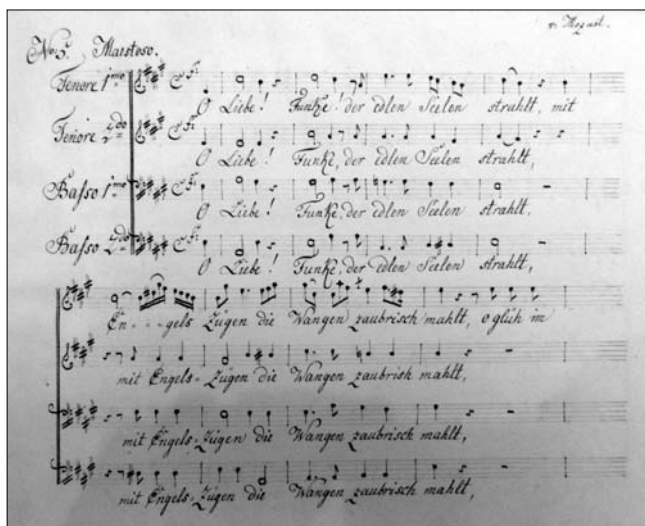 v. Mozart.
No 5. Maestoso.
Tenore 1mo
O Liebe! Funke! der edlen Seelen strahlt, mit
Tenore 2do
O Liebe! Funke, der edlen Seelen strahlt,
Basso 1mo
O Liebe! Funke, der edlen Seelen strahlt.
Basso 2do
O Liebe! Funke, der edlen Seelen strahlt,
En - - gels-Zügen die Wangen zaubrisch mahlt, o glüh im
mit Engels-Zügen die Wangen zaubrisch mahlt,
mit Engels-Zügen die Wangen zaubrisch mahlt,
mit Engels-Zügen die Wangen zaubrisch mahlt,